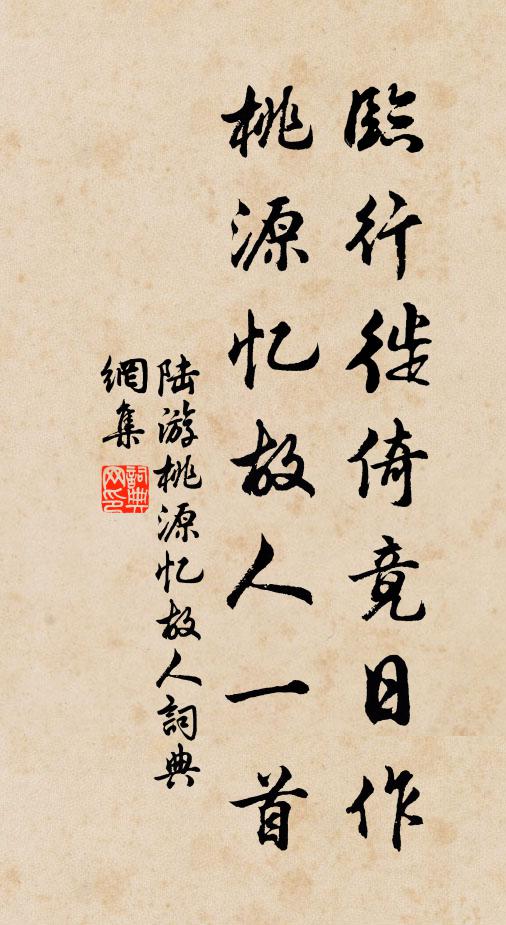 臨行徙倚竟日作
桃源忆故人一首
陆游桃源忆故人詞典
網集
詞典网印